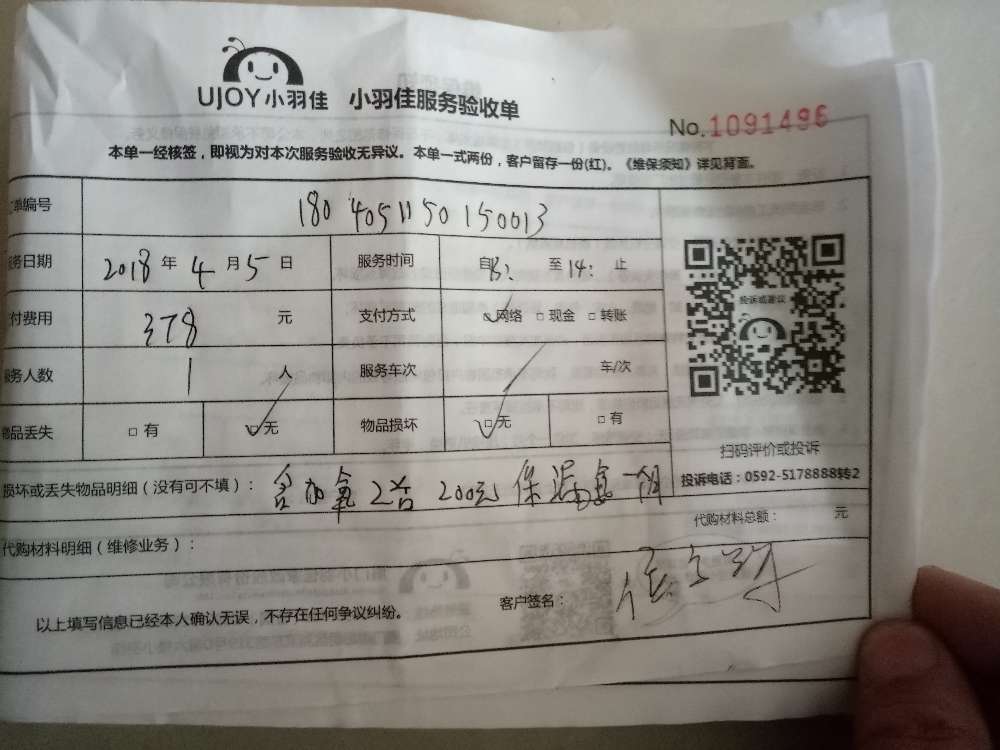 UJOY小羽佳 小羽佳服务验收单
No.1091496
本单一经核签，即视为对本次服务验收无异议。本单一式两份，客户留存一份(红)。《维保须知》详见背面。
单编号 1804051150150013
务日期 2018 年 4 月 5 日 服务时间 自 至 14: 止
付费用 378 元 支付方式 网络 □ 现金 □ 转账
务人数 1 人 服务车次 车/次
物品丢失 □ 有 □无 物品损坏 □无 □ 有
投诉或建议
扫码评价或投诉
投诉电话：0592-5178888转2
损坏或丢失物品明细（没有可不填）： 含加氧2台 200元 保漏氟一
代购材料总额： 元
代购材料明细（维修业务）：
以上填写信息已经本人确认无误，不存在任何争议纠纷。
客户签名：